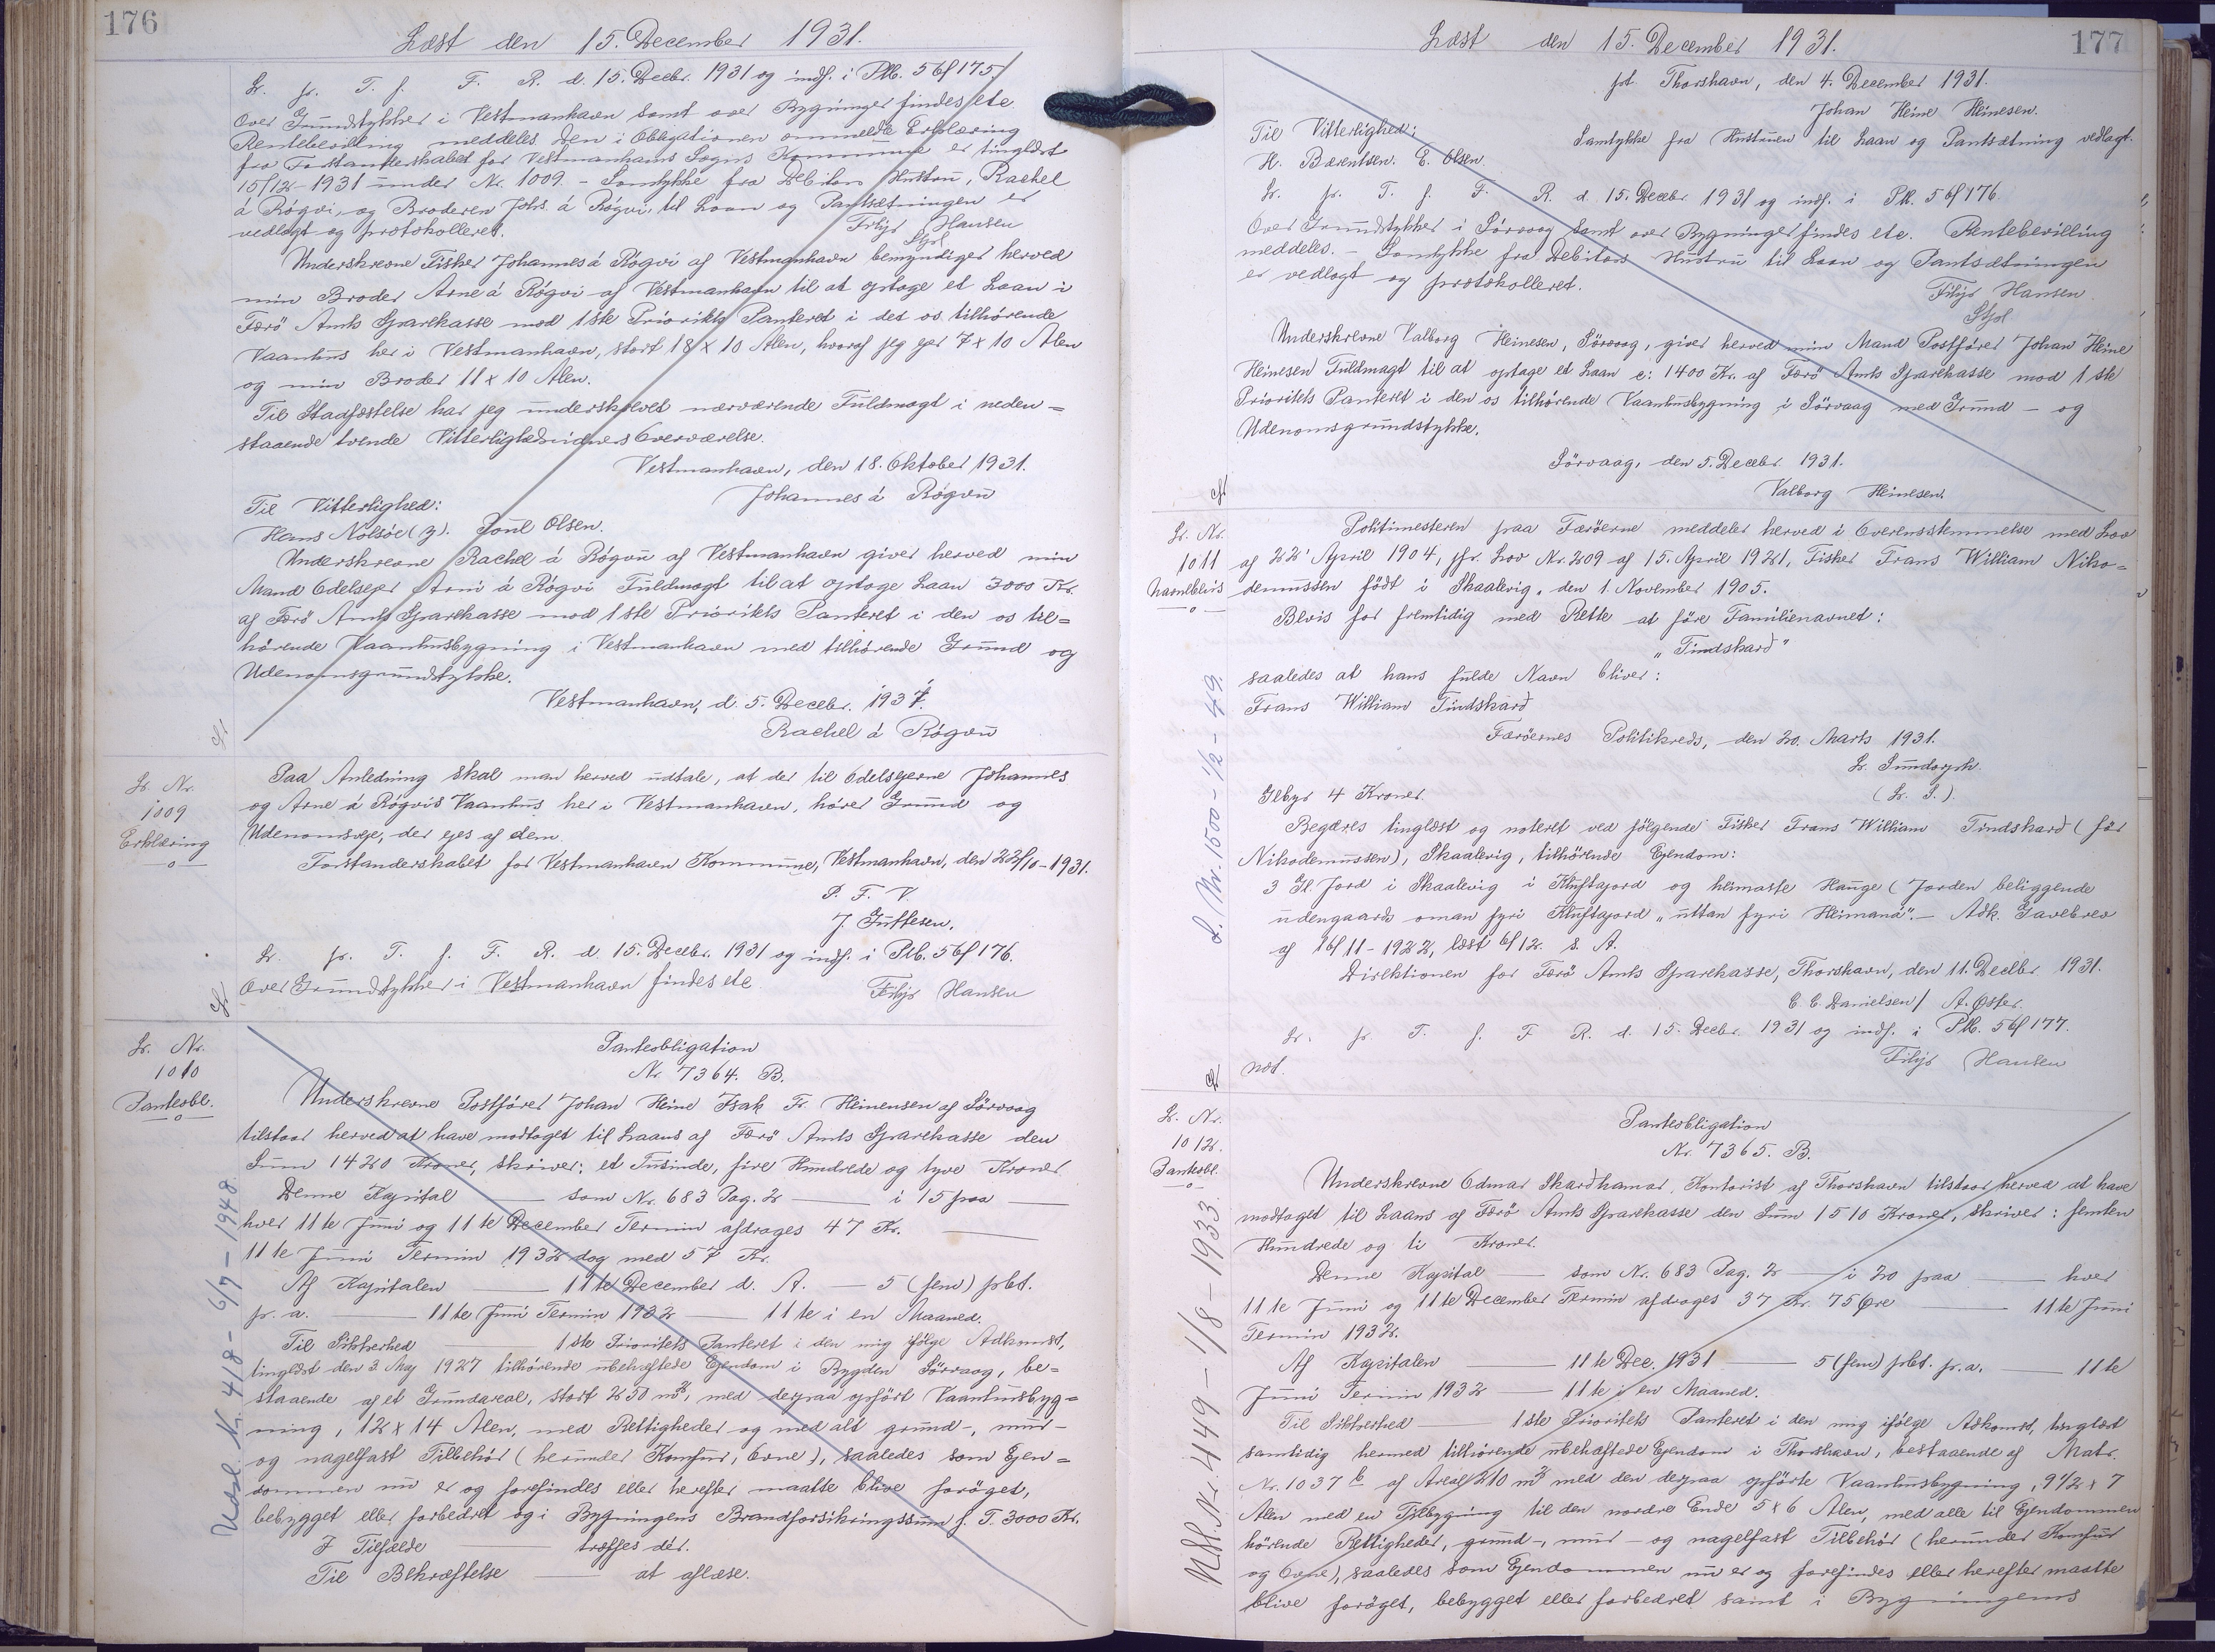 176
Læst den 15. December 1931.
L. pr. T. f. F. R. d. 15. Decbr. 1931 og indf. i Plb. 56f175.
Over Grundstykker i Vestmanhavn samt over Bygninger findes etc.
Rentebevilling meddeles. Den i Obligationen ommeldte Erklæring
fra Forstanderskabet for Vestmanhavns Sogns Kommune er tinglæst
15/12-1931 under Nr. 1009. - Samtykke fra Debitors Hustru, Rachel
á Rógvi, og Broderen Johs. á Rógvi, til Laan og Pantsætningen er
vedlagt og protokolleret.
Filip Hansen
Stf.
Underskrevne Fisker Johannes á Rógvi af Vestmanhavn bemyndiger herved
min Broder Arne á Rógvi af Vestmanhavn til at optage et Laan i
Færö Amts Sparekasse mod 1ste Prioritets Panteret i det os tilhörende
Vaanhus her i Vestmanhavn, stort 18 x 10 Alen, hvoraf jeg ejer 7 x 10 Alen
og min Broder 11 x 10 Alen.
Til Stadfæstelse har jeg underskrevet nærværende Fuldmagt i neden=
staaende tvende Vitterlighedsvidners Overværelse.
Vestmanhavn, den 18. Oktober 1931.
Johannes á Rógvu
Til Vitterlighed:
Hans Nolsöe (y). Poul Olsen.
Underskrevne Rachel á Rógvu af Vestmanhavn giver herved min
Mand Odelsejer Arni á Rógvi Fuldmagt til at optage Laan 3000 Kr.
af Færö Amts Sparekasse mod 1ste Prioritets Panteret i den os til=
hörende Vaanhusbygning i Vestmanhavn med tilhörende Grund og
Udenomsgrundstykke.
Vestmanhavn, d. 5. Decebr. 1931.
Rachel á Rógvu
L. Nr.
1009
Erklæring
Paa Anledning skal man herved udtale, at der til Odelsejerne Johannes
og Arne á Rógvis Vaanhus her i Vestmanhavn, hörer Grund og
Udenomsveje, der ejes af dem.
Forstanderskabet for Vestmanhavn Kommune, Vestmanhavn, den 22/10-1931.
P. F. V.
J. Guttesen.
L. pr. T. f. F. R. d. 15. Decbr. 1931 og indf. i Plb. 56f176.
Over Grundstykker i Vestmanhavn findes etc.
Filip Hansen
L. Nr.
1010
Panteobl.
Panteobligation
Nr. 7364. B.
Underskrevne Postförer Johan Heine Isak Fr. Heinensen af Sörvaag
tilstaar herved at have modtaget til Laans af Færö Amts Sparekasse den
Sum 1420 Kroner, skriver: et Tusinde, fire Hundrede og tyve Kroner.
Denne Kapital — som Nr. 683 Pag. 2 — i 15 paa —
hver 11te Juni og 11te December Termin afdrages 47 Kr. —
11te Juni Termin 1932 dog med 57 Kr.
Af Kapitalen — 11te December d. A. — 5 (fem) pCt.
pr. a. — 11te Juni Termin 1932 — 11te i en Maaned.
Til Sikkerhed — 1ste Prioritets Panteret i den mig ifölge Adkomst,
tinglæst den 3. Maj 1927 tilhörende ubehæftede Ejendom i Bygden Sörvaag, be=
staaende af et Grundareal, stort 250 m², med derpaa opfört Vaanhusbyg=
ning, 12 x 14 Alen, med Rettigheder og med alt grund-, mur-
og nagelfast Tilbehör (herunder Komfur, Ovne), saaledes som Ejen=
dommen nu er og forefindes eller herefter maatte blive foröget,
bebygget eller forbedret og i Bygningens Brandforsikringssum f. T. 3000 Kr.
I Tilfælde — træffes dér.
Til Bekræftelse — at aflæse.
Udsl. Nr. 418 - 6/7 - 1948.
177
Læst den 15. December 1931.
pt Thorshavn, den 4. December 1931.
Johan Heine Heinesen.
Til Vitterlighed:
Samtykke fra Hustruen til Laan og Pantsætning vedlagt.
H. Bærentsen. E. Olsen.
L. pr. T. f. F. R. d. 15. Decbr. 1931 og indf. i Plb. 56f176.
Over Grundstykker i Sörvaag samt over Bygninger findes etc. Rentebevilling
meddeles. - Samtykke fra Debitors Hustru til Laan og Pantsætningen
er vedlagt og protokolleret.
Filip Hansen.
Stf.
Underskrevne Valborg Heinesen, Sörvaag, giver herved min Mand Postförer Johan Heine
Heinesen Fuldmagt til at optage et Laan c: 1400 Kr. af Færö Amts Sparekasse mod 1ste
Prioritets Panteret i den os tilhörende Vaanhusbygning i Sörvaag med Grund - og
Udenomsgrundstykke.
Sörvaag, den 5. Decebr. 1931.
Valborg Heinesen.
L. Nr.
1011
Navnebevis
Politimesteren paa Færöerne meddeler herved i Overensstemmelse med Lov
af 22' April 1904, jfr. Lov Nr. 209 af 15. April 1921, Fisker Frans William Niko=
demussen födt i Skaalevig, den 1. November 1905.
Bevis for fremtidig med Rette at före Familienavnet:
"Tindskard"
saaledes at hans fulde Navn bliver:
Frans William Tindskard
Færöernes Politikreds, den 20. Marts 1931.
L. Sundorph.
(L. S.)
Gebyr 4 Kroner.
Begæres tinglæst og noteret ved fölgende Fisker Frans William Tindskard (för
Nikodemussen), Skaalevig, tilhörende Ejendom:
3 Gl. Jord i Skaalevig i Kluftajord og heimasta Hauge (Jorden beliggende
udengaards oman fyri Kluftajord "uttan fyri Heimaná". - Adk. Gavebrev
af 16/11-1922, læst 6/12. s. A.
Direktionen for Færö Amts Sparekasse, Thorshavn, den 11. Decbr. 1931.
C. C. Danielsen / A. Öster.
L. pr. T. f. F. R. d. 15. Decbr. 1931 og indf. i Plb. 56f177.
not.
Filip Hansen
L. Nr. 1500 - 1/2 - 49.
L. Nr.
1012.
Panteobl.
Panteobligation
Nr. 7365. B.
Underskrevne Odmar Skardhamar, Kontorist af Thorshavn tilstaar herved at have
modtaget til Laans af Færö Amts Sparekasse den Sum 1510 Kroner, skriver: femten
Hundrede og ti Kroner.
Denne Kapital — som Nr. 683 Pag. 2 — i 20 paa — hver
11te Juni og 11te December Termin afdrages 37 Kr. 75 Øre — 11te Juni
Termin 1932.
Af Kapitalen — 11te Dec. 1931 — 5 (fem) pCt. pr. a. — 11te
Juni Termin 1932 — 11te i en Maaned.
Til Sikkerhed — 1ste Prioritets Panteret i den mig ifölge Adkomst, tinglæst
samtidig hermed tilhörende ubehæftede Ejendom i Thorshavn, bestaaende af Matr.
Nr. 1037 b af Areal 210 m² med den derpaa opförte Vaanhusbygning, 9½ x 7
Alen med en Tilbygning til den nordre Ende 5 x 6 Alen, med alle til Ejendommen
hörende Rettigheder, grund-, mur- og nagelfast Tilbehör (herunder Komfur
og Ovne), saaledes som Ejendommen nu er og forefindes eller herefter maatte
blive foröget, bebygget eller forbedret samt i Bygningens
Udsl. Nr. 449 - 1/8 - 1933.